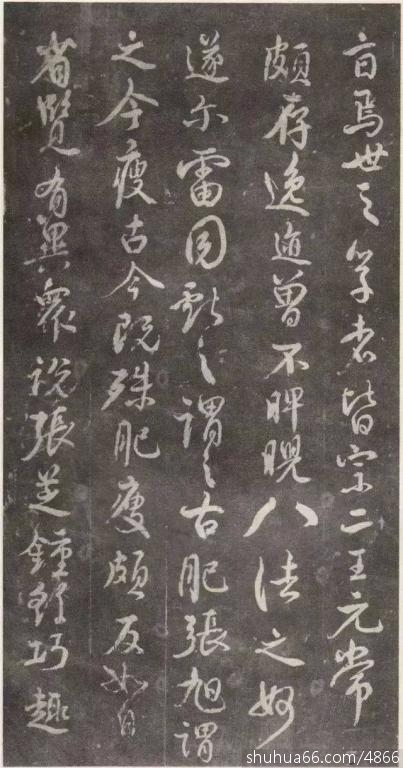 盲焉世之學者皆宗二王元常
頗存逸迹曾不睥睨八法之妙
遂尔雷同獻之謂之古肥張旭謂
之今瘦古今既殊肥瘦頗反如自
省覽有異衆說張芝鍾繇巧趣
shuhua66.com/4866